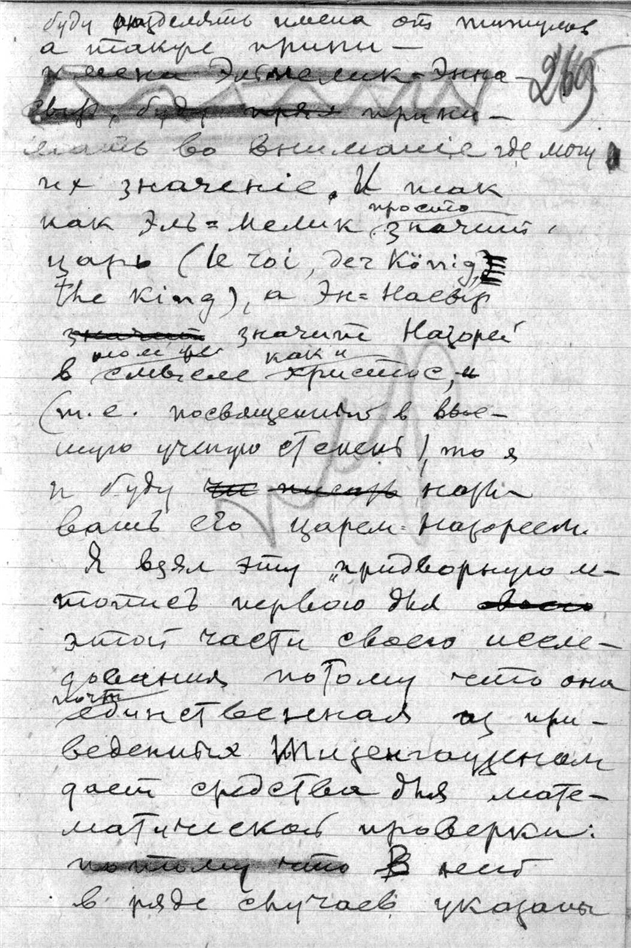 буду разделять имена от титулов
а также прини-
имена Эль-мелик-Энна-
269
сыр, буду прям прини-
мать во вниманіе где могу
их значеніе. И так
как Эль=мелик просто значит
царь (le roi, der König,
the king), а Эн=Насыр
значит значит Назорей
в том же смысле как и христос,
(т.е. посвященный в выс-
шую ученую степень) то я
и буду писать назы-
вать его царем-назореем.
Я взял эту „придворную ле-
топись первого для
этой части своего иссле-
дования потому что она
почти единственная из при-
веденных Тизенгаузеном
дает средства для мате-
матической проверки:
потому что В ней
в ряде случаев указаны